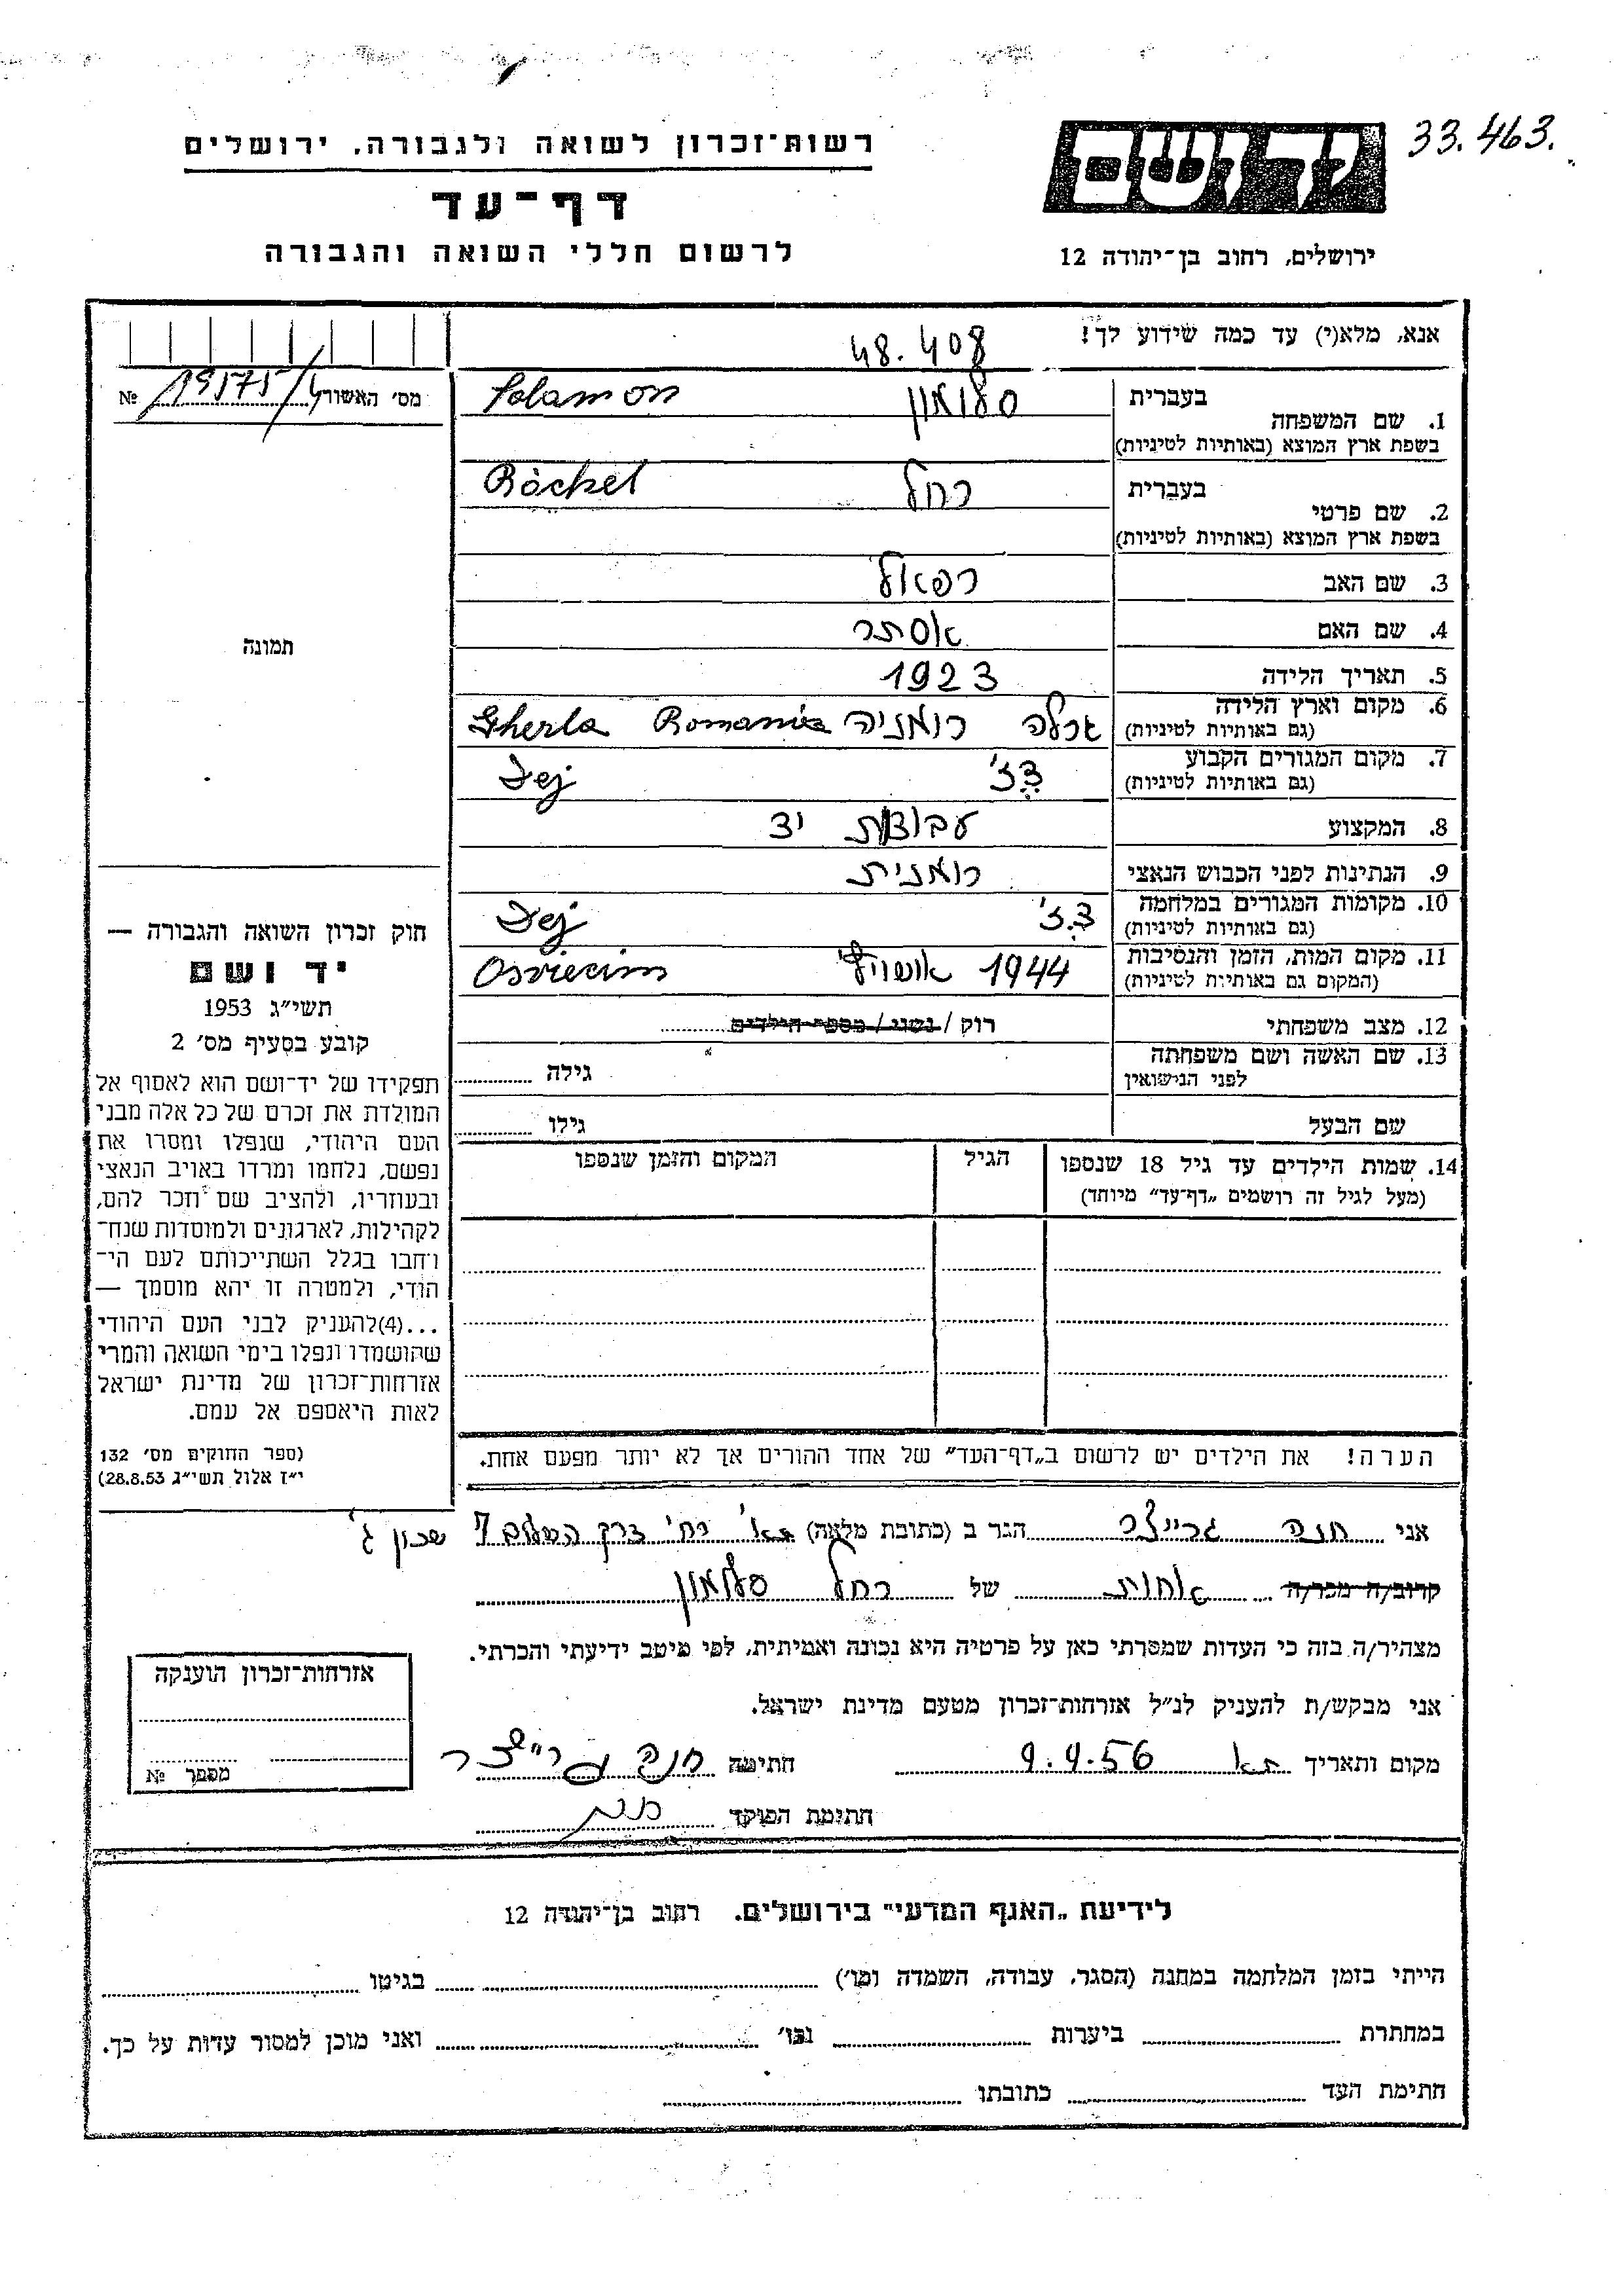 33.463.
רשות־זכרון לשואה ולגבורה, ירושלים
דף־עד
לרשום חללי השואה והגבורה
יד ושם
ירושלים, רחוב בן־יהודה 12
אנא, מלא(י) עד כמה שידוע לך!
48.408
מס׳ האשורי 19175/4 №
תמונה
1. שם המשפחה בעברית סלומון Solamon
בשפת ארץ המוצא (באותיות לטיניות)
2. שם פרטי בעברית רחל Ròchel
בשפת ארץ המוצא (באותיות לטיניות)
3. שם האב רפאל
4. שם האם אסתר
5. תאריך הלידה 1923
6. מקום וארץ הלידה רומניה Gherla Romania
(גם באותיות לטיניות)
7. מקום המגורים הקבוע דז׳ Dej
(גם באותיות לטיניות)
8. המקצוע עבודת יד
9. הנתינות לפני הכבוש הנאצי רומנית
10. מקומות המגורים במלחמה דז׳ Dej
(גם באותיות לטיניות)
11. מקום המות, הזמן והנסיבות 1944 Osviecim
(המקום גם באותיות לטיניות)
12. מצב משפחתי רוק / נשוי / מספר הילדים
13. שם האשה ושם משפחתה גילה
לפני הנישואין
שם הבעל גילו
14. שמות הילדים עד גיל 18 שנספו הגיל המקום והזמן שנספו
(מעל לגיל זה רושמים „דף־עד״ מיוחד)
הערה! את הילדים יש לרשום ב„דף־העד״ של אחד ההורים אך לא יותר מפעם אחת.
חוק זכרון השואה והגבורה —
יד ושם
תשי״ג 1953
קובע בסעיף מס׳ 2
תפקידו של יד־ושם הוא לאסוף אל
המולדת את זכרם של כל אלה מבני
העם היהודי, שנפלו ומסרו את
נפשם, נלחמו ומרדו באויב הנאצי
ובעוזריו, ולהציב שם וזכר להם,
לקהילות, לארגונים ולמוסדות שנח־
רחבו בגלל השתייכותם לעם הי־
הודי, ולמטרה זו יהא מוסמך —
...(4)להעניק לבני העם היהודי
שהושמדו ונפלו בימי השואה והמרי
אזרחות־זכרון של מדינת ישראל
לאות היאספם אל עמם.
(ספר החוקים מס׳ 132
י״ז אלול תשי״ג 28.8.53)
אני חנה גרייצר הגר ב (כתובת מלאה) ת״א רח׳ דרך השלום 7 שכון ג׳
קרוב/ה מכר/ה אחות של רחל סלומון
מצהיר/ה בזה כי העדות שמסרתי כאן על פרטיה היא נכונה ואמיתית, לפי מיטב ידיעתי והכרתי.
אני מבקש/ת להעניק לנ״ל אזרחות־זכרון מטעם מדינת ישראל.
מקום ותאריך ת״א 9.4.56 חתימה חנה גרייצר
חתימת הפוקד
אזרחות־זכרון הוענקה
מספר №
לידיעת „האגף המדעי״ בירושלים. רחוב בן־יהודה 12
הייתי בזמן המלחמה במחנה (הסגר, עבודה, השמדה וכו׳) בגיטו
במחתרת ביערות וכו׳ ואני מוכן למסור עדות על כך.
חתימת העד כתובתו